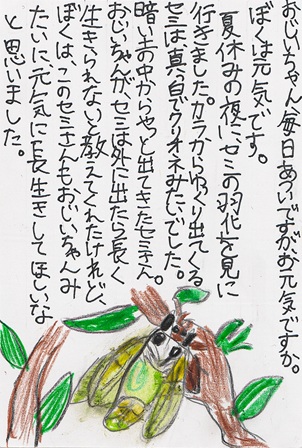 おじいちゃん毎日あついですが、お元気ですか。
ぼくは元気です。
夏休みの夜に、セミの羽化を見に
行きました。カラからゆっくり出てくる
セミは真白でクリオネみたいでした。
暗い土の中からやっと出てきたセミさん。
おじいちゃんが、セミは外に出たら長く
生きられないと教えてくれたけれど、
ぼくは、このセミさんも、おじいちゃんみ
たいに、元気に長生きしてほしいな
と思いました。